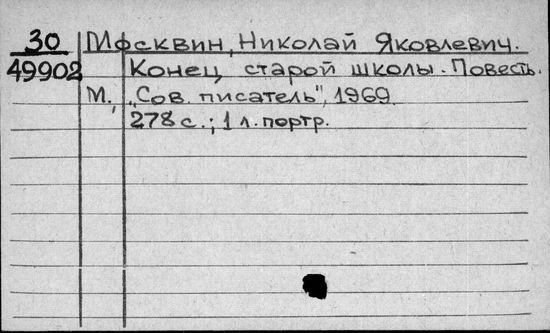 30 Москвин, Николай Яковлевич.
49902 Конец старой школы. Повесть.
М., „Сов. писатель", 1969.
278 с.; 1 л. портр.